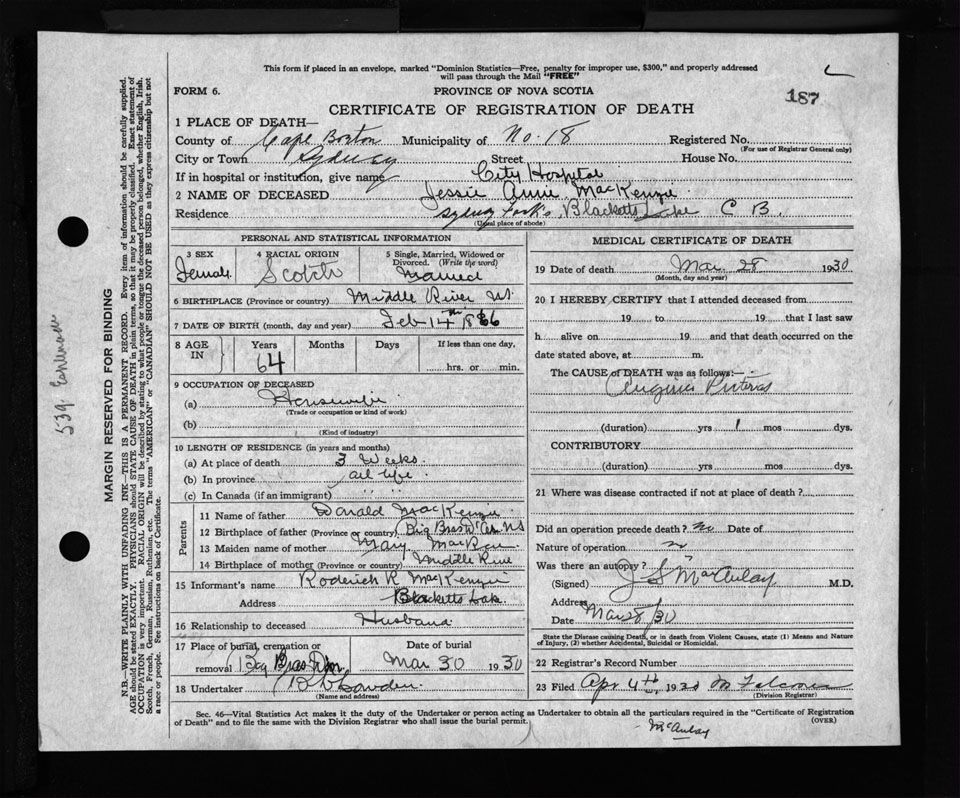 This form if placed in an envelope, marked "Dominion Statistics—Free, penalty for improper use, $300," and properly addressed
will pass through the Mail "FREE"
FORM 6. PROVINCE OF NOVA SCOTIA 187
CERTIFICATE OF REGISTRATION OF DEATH
1 PLACE OF DEATH—
County of Cape Breton Municipality of No. 18 Registered No.
(For use of Registrar General only)
City or Town Sydney Street House No.
If in hospital or institution, give name City Hospital
2 NAME OF DECEASED Jessie Annie MacKenzie
Residence Sydney Forks Blacketts Lake C B.
(Usual place of abode)
PERSONAL AND STATISTICAL INFORMATION
3 SEX 4 RACIAL ORIGIN 5 Single, Married, Widowed or
Divorced. (Write the word)
Female Scotch Married
6 BIRTHPLACE (Province or country) Middle River NS.
7 DATE OF BIRTH (month, day and year) Feb 14th 1866
8 AGE IN Years Months Days If less than one day,
64 hrs. or min.
9 OCCUPATION OF DECEASED
(a) Housewife
(Trade or occupation or kind of work)
(b)
(Kind of industry)
10 LENGTH OF RESIDENCE (in years and months)
(a) At place of death 3 Weeks.
(b) In province all life
(c) In Canada (if an immigrant) " "
Parents
11 Name of father Donald MacKenzie
12 Birthplace of father (Province or country) Big Bras d'Or NS
13 Maiden name of mother Mary MacRae
14 Birthplace of mother (Province or country) Middle River
15 Informant's name Roderick R MacKenzie
Address Blacketts Lake
16 Relationship to deceased Husband
17 Place of burial, cremation or Date of burial
removal Big Bras D'Or Mar 30 1930
18 Undertaker
(Name and address)
MEDICAL CERTIFICATE OF DEATH
19 Date of death Mar. 28 1930
(Month, day and year)
20 I HEREBY CERTIFY that I attended deceased from
19 to 19 that I last saw
h alive on 19 and that death occurred on the
date stated above, at m.
The CAUSE of DEATH was as follows:—
Angina Pectoris
(duration) yrs 1 mos dys.
CONTRIBUTORY
(duration) yrs. mos dys.
21 Where was disease contracted if not at place of death?
Did an operation precede death? no Date of
Nature of operation
Was there an autopsy?
(Signed) J S MacAulay M.D.
Address
Date Mar 28/30
State the Disease causing Death, or in death from Violent Causes, state (1) Means and Nature
of Injury, (2) whether Accidental, Suicidal or Homicidal.
22 Registrar's Record Number
23 Filed Apr 4th 1930
(Division Registrar)
Sec. 46—Vital Statistics Act makes it the duty of the Undertaker or person acting as Undertaker to obtain all the particulars required in the "Certificate of Registration
of Death" and to file the same with the Division Registrar who shall issue the burial permit.
(OVER)
McAulay
MARGIN RESERVED FOR BINDING
N.B.—WRITE PLAINLY WITH UNFADING INK—THIS IS A PERMANENT RECORD. Every item of information should be carefully supplied.
AGE should be stated EXACTLY. PHYSICIANS should STATE CAUSE OF DEATH in plain terms, so that it may be properly classified. Exact statement of
OCCUPATION is very important. RACIAL ORIGIN will be described by stating to what people or tongue the deceased person belonged, whether English, Irish,
Scotch, French, German, Russian, Ruthenian, etc. The terms "AMERICAN" or "CANADIAN" SHOULD NOT BE USED as they express citizenship but not
a race or people. See instructions on back of Certificate.